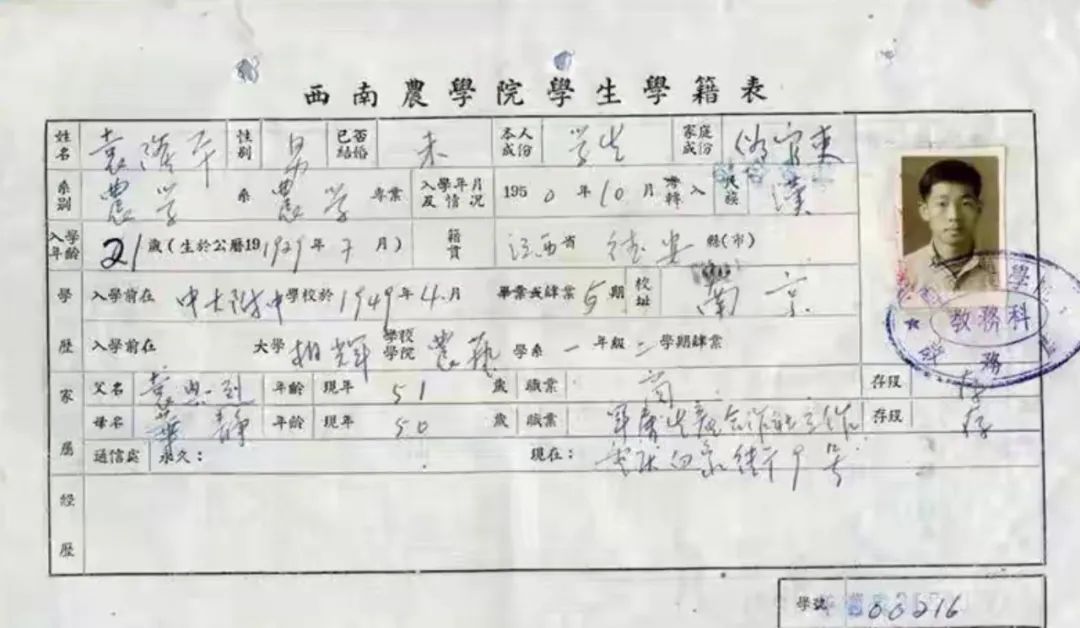 西南農學院學生學籍表
姓名 袁隆平 性別 男 已否結婚 未 本人成份 学生 家庭成份
系別 農学 系 農学 專業 入學年月及情况 1950年10月 轉入 民族 漢
入學年齡 21歲(生於公曆191929年7月) 籍貫 江西省 德安 縣(市)
學 入學前在 中大附中 學校於1949年4月 畢業或肄業 5期 校址 南京
歷 入學前在 大學 相輝 學校學院 農藝 學系 一 年級 二 學期肄業
家 父名 袁興烈 年齡 現年 51 歲 職業 商 存歿 存
母名 華靜 年齡 現年 50 歲 職業 生產合作社工作 存歿 存
屬 通信處 永久: 現在: 重庆白象街9号
經
歷
教務科
學號 00216